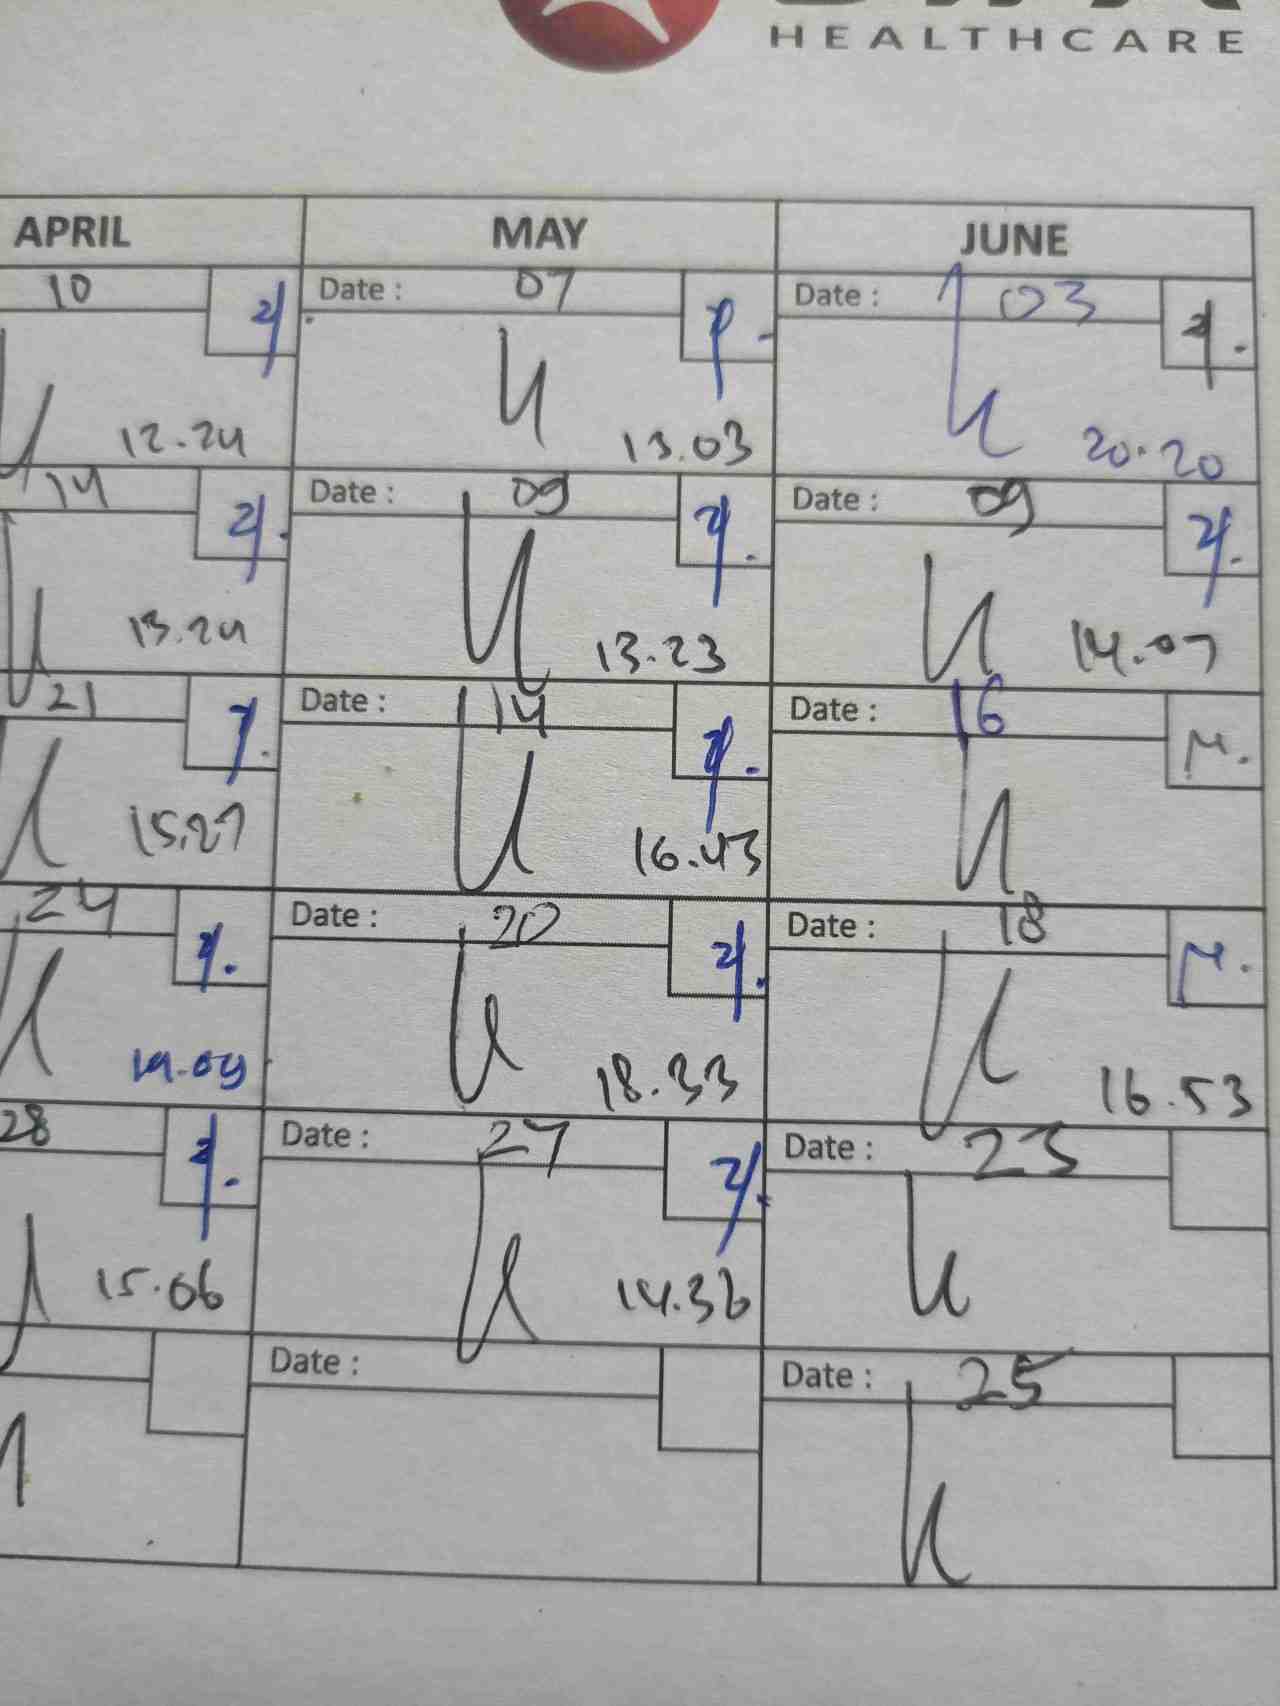 HEALTHCARE
APRIL MAY JUNE
10 Date : 07 Date : 03
12.24 13.03 20.20
14 Date : 09 Date : 09
13.24 13.23 14.07
21 Date : 14 Date : 16
15.27 16.43
24 Date : 20 Date : 18
18.33 16.53
28 Date : 27 Date : 23
15.06 14.36
Date : Date : 25